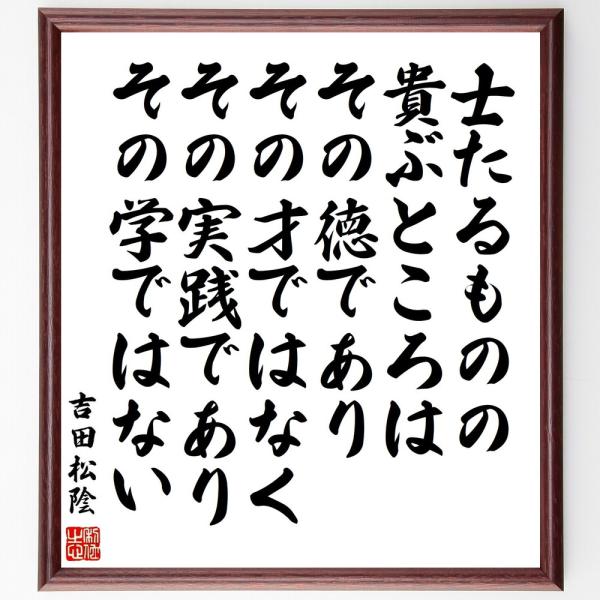 士たるものの
貴ぶところは
その徳であり
その才ではなく
その実践であり
その学ではない
吉田松陰